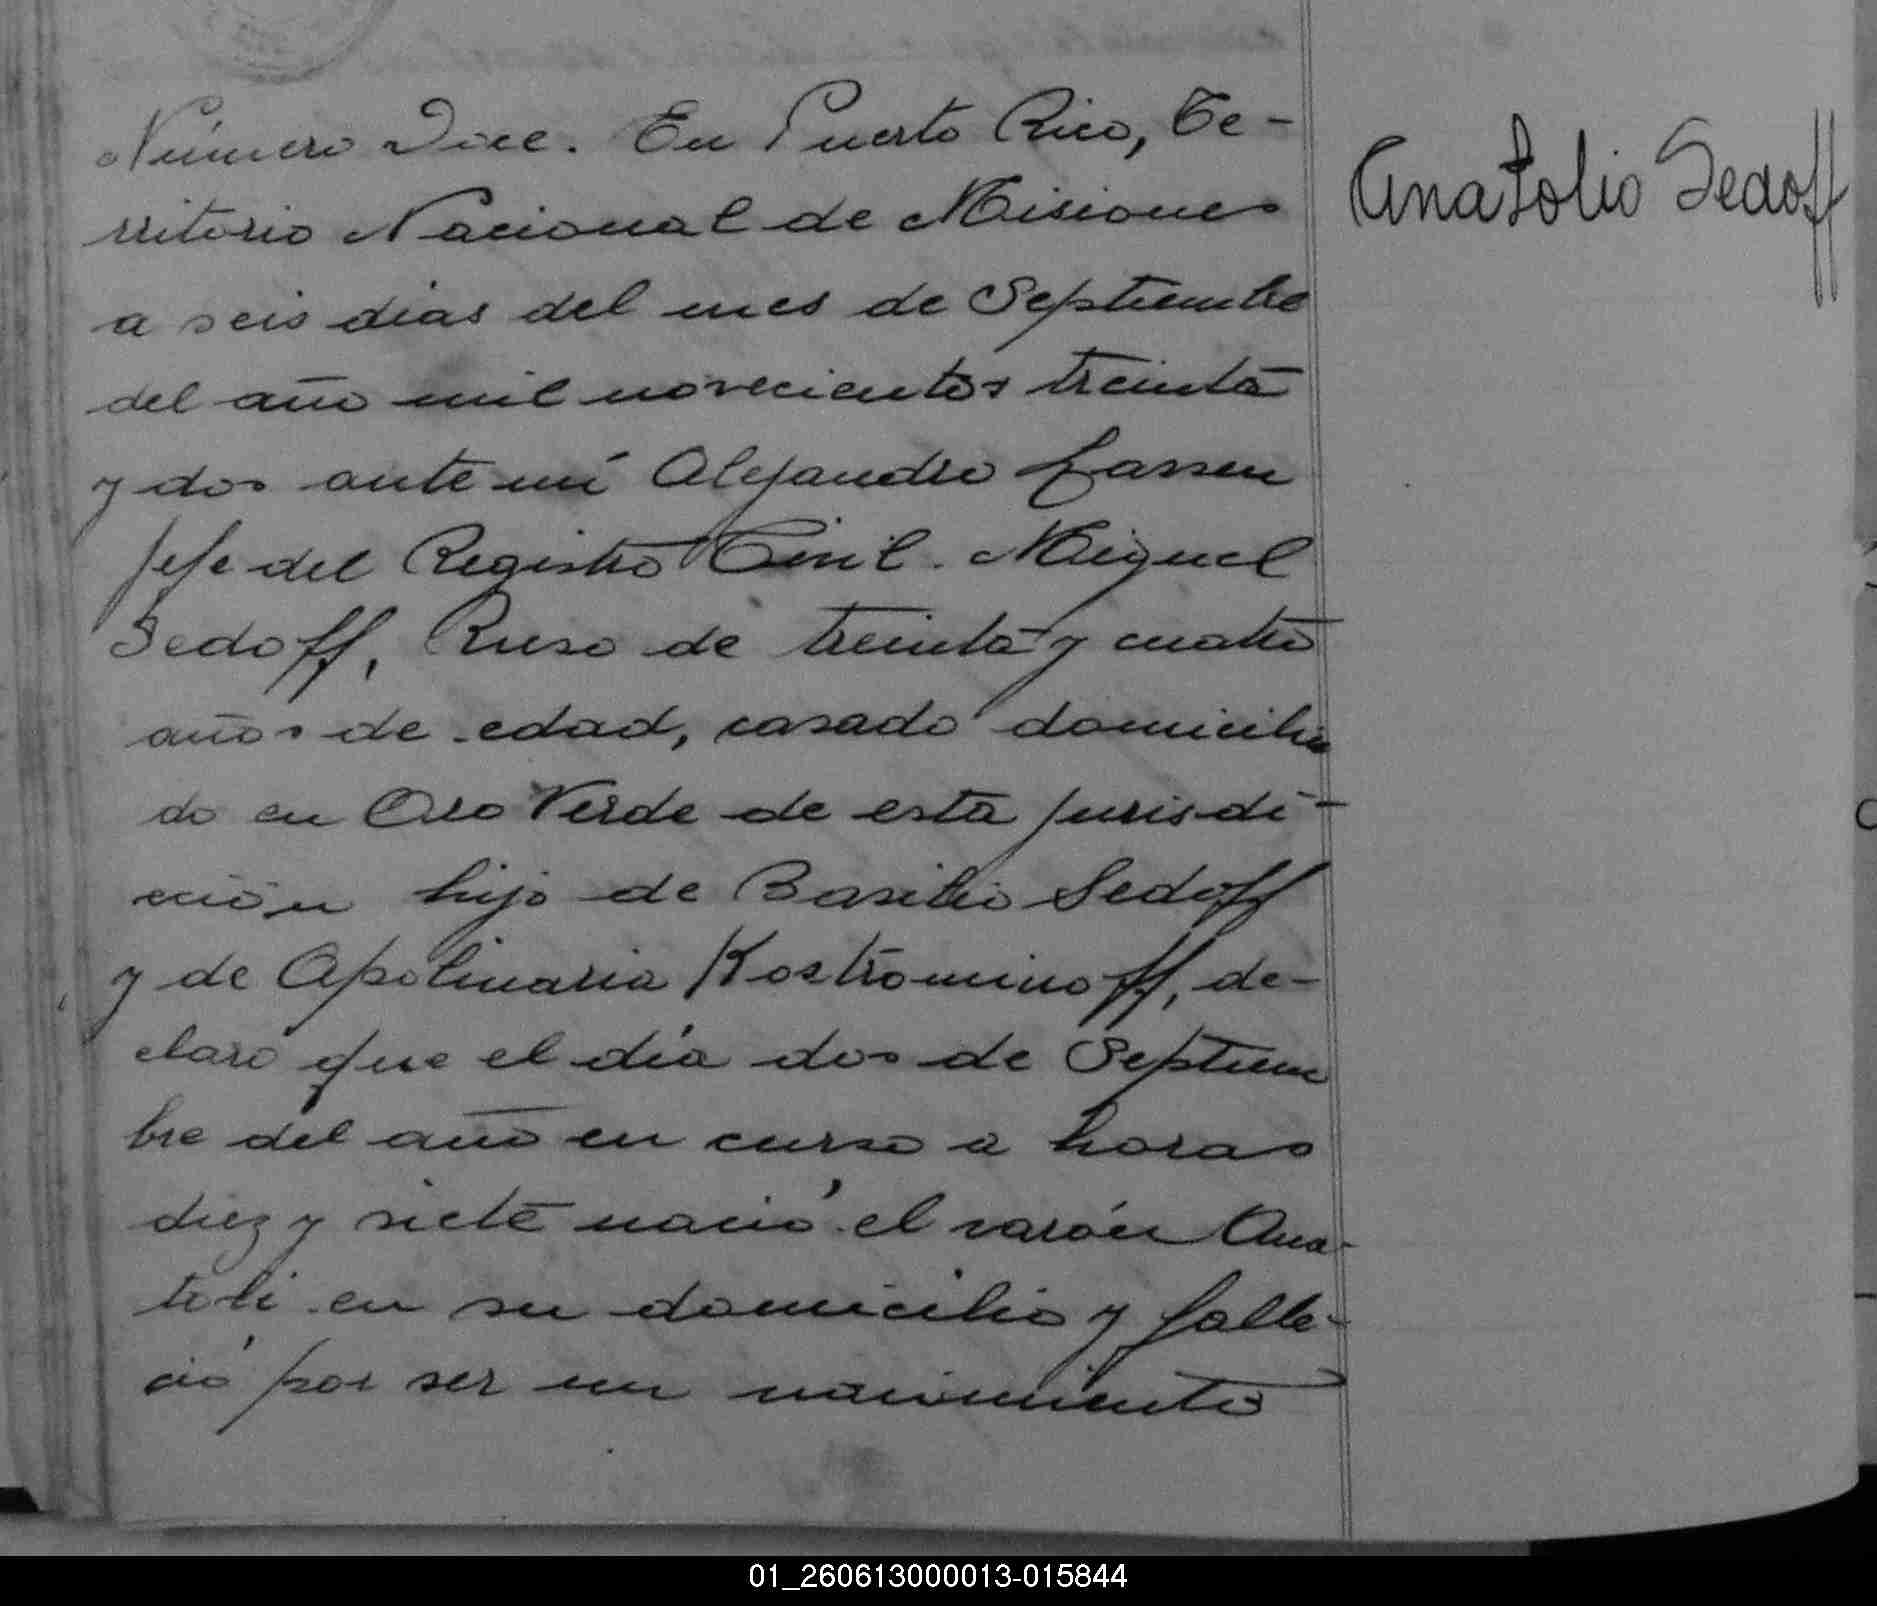 Número Doce. En Puerto Rico, Te-
rritorio Nacional de Misiones
a seis dias del mes de Septiembre
del año mil novecientos treinta
y dos ante mí Alejandro Lassen
Jefe del Registro Civil. Miguel
Sedoff, Ruso de treinta y cuatro
años de edad, casado domicilia
do en Oro Verde de esta jurisdi-
cción hijo de Basilio Sedoff
y de Apolinaria Kostrominoff, de-
claró que el día dos de Septiem
bre del año en curso a horas
diez y siete nació el varón Ana-
toli en su domicilio y falle-
ció por ser un nacimiento
Anatolio Sedoff
01_260613000013-015844